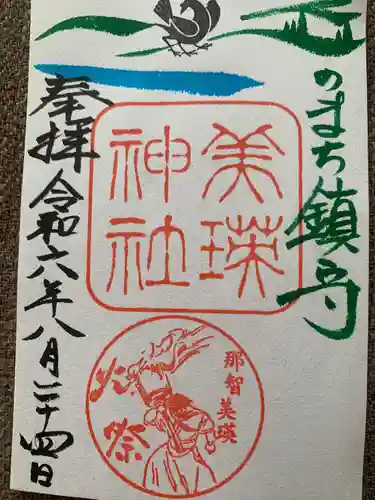 のまち鎮守
美瑛
神社
奉拝
令和六年八月二十四日
那智美瑛
火祭